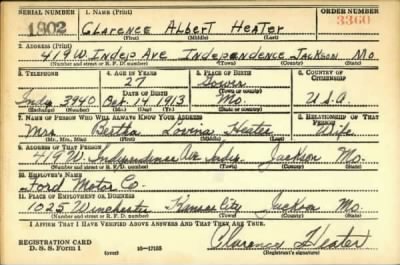 SERIAL NUMBER 1. NAME (Print) ORDER NUMBER
1802 CLARENCE Albert Heater 3360
(First) (Middle) (Last)
2. ADDRESS (Print)
419 W. Indep Ave Independence Jackson Mo.
(Number and street or R. F. D. number) (Town) (County) (State)
3. TELEPHONE 4. AGE IN YEARS 5. PLACE OF BIRTH 6. COUNTRY OF CITIZENSHIP
27 Gower
(Town or county)
DATE OF BIRTH
Inde. 3940 Oct. 14 1913 Mo. U.S.A.
(Exchange) (Number) (Mo.) (Day) (Yr.) (State or country)
7. NAME OF PERSON WHO WILL ALWAYS KNOW YOUR ADDRESS 8. RELATIONSHIP OF THAT PERSON
Mrs. Bertha Lovina Heater Wife
(Mr., Mrs., Miss) (First) (Middle) (Last)
9. ADDRESS OF THAT PERSON
419 W. Independence Ave Indep. Jackson Mo.
(Number and street or R. F. D. number) (Town) (County) (State)
10. EMPLOYER'S NAME
Ford Motor Co.
11. PLACE OF EMPLOYMENT OR BUSINESS
1025 Winchester Kansas City Jackson Mo.
(Number and street or R. F. D. number) (Town) (County) (State)
I AFFIRM THAT I HAVE VERIFIED ABOVE ANSWERS AND THAT THEY ARE TRUE.
REGISTRATION CARD
D. S. S. Form 1 16-17105 Clarence Heater
(Registrant's signature)